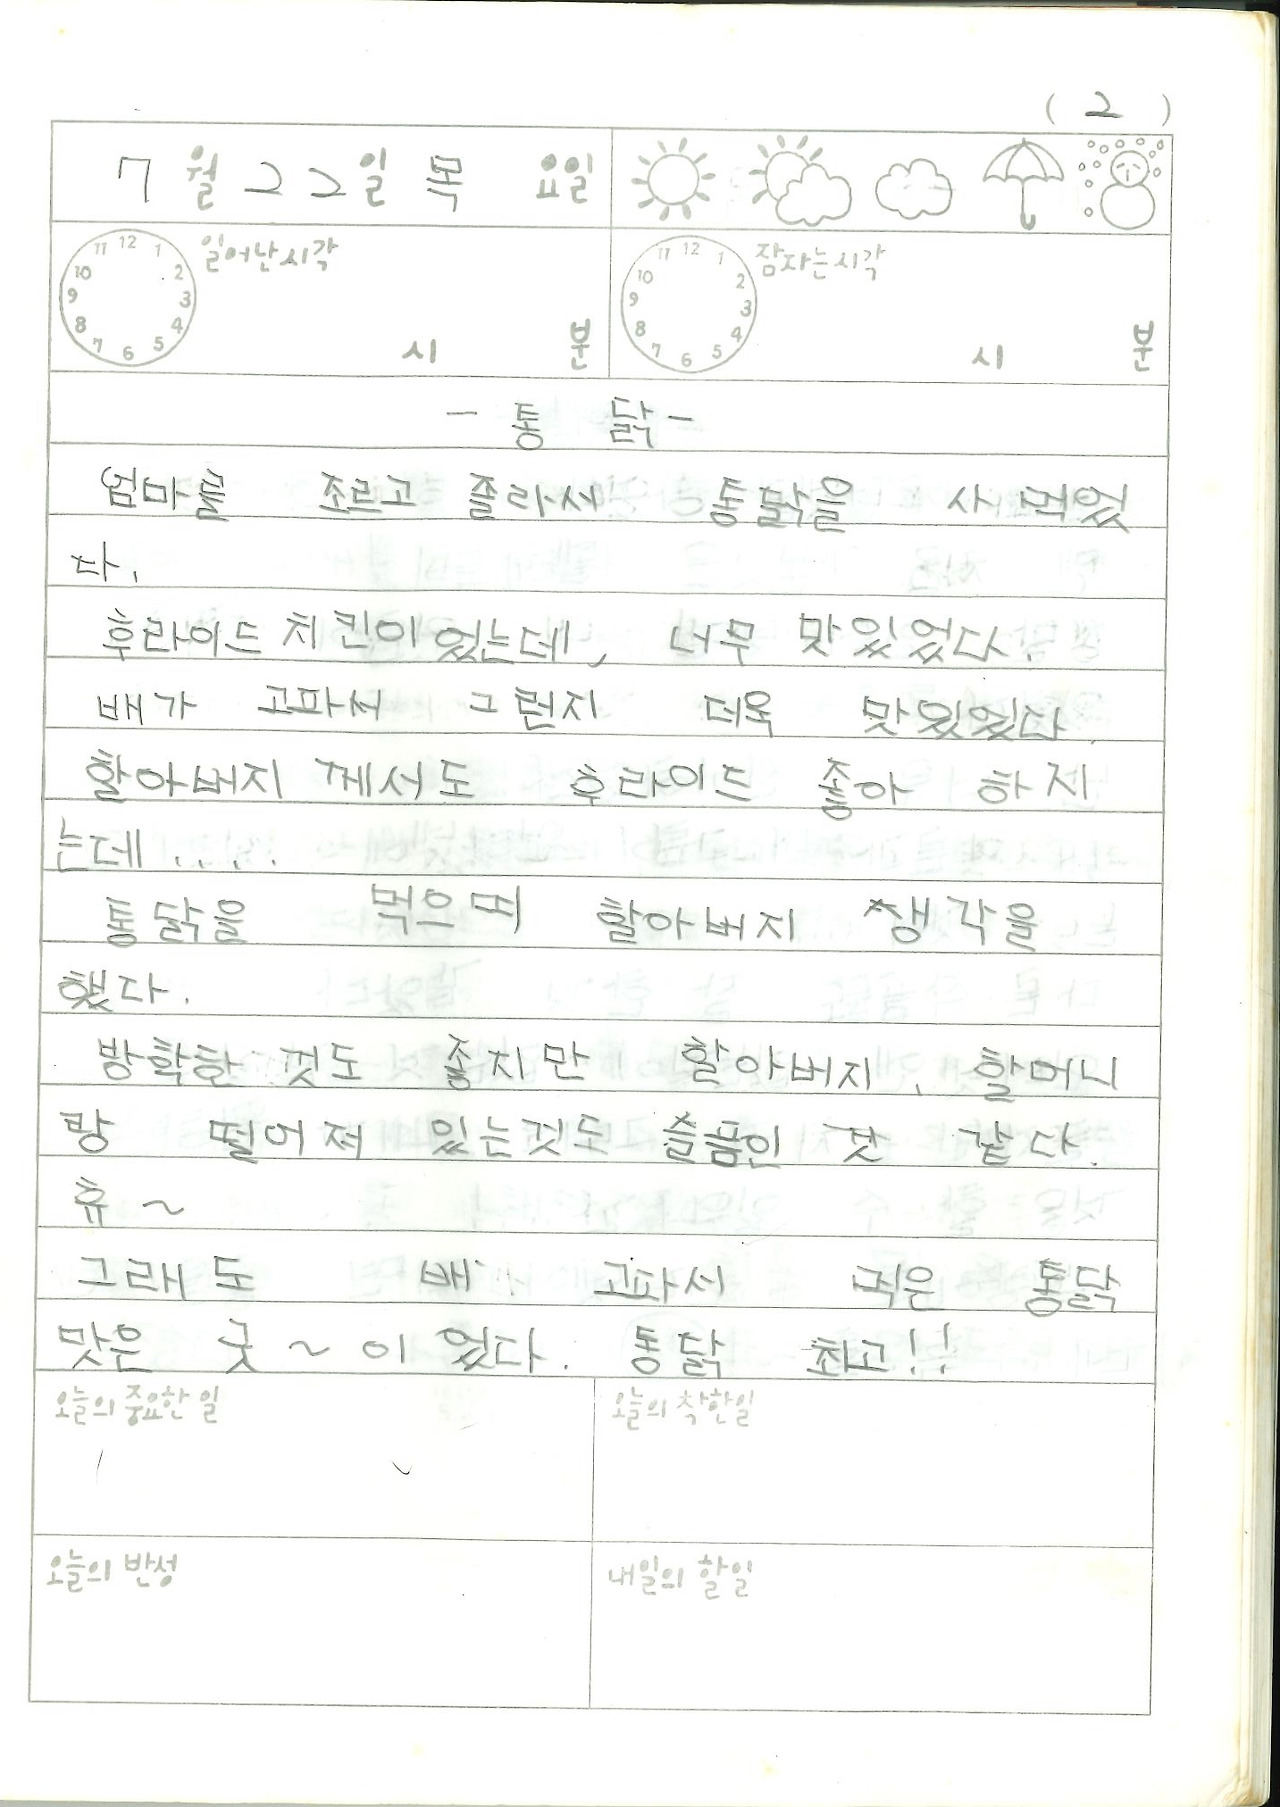 ( 2 )
7월 22일 목 요일
12 1 2 3 4 5 6 7 8 9 10 11
일어난시각
시 분
12 1 2 3 4 5 6 7 8 9 10 11
잠자는시각
시 분
- 통 닭 -
엄마를 조르고 졸라서 통닭을 사먹었
다.
후라이드 치킨이었는데, 너무 맛있었다.
배가 고파서 그런지 더욱 맛있었다.
할아버지 께서도 후라이드 좋아 하지
는데.....
통닭을 먹으며 할아버지 생각을
했다.
방학한 것도 좋지만 할아버지, 할머니
랑 떨어져 있는것도 슬픔인 것 같다.
휴~
그래도 배 고파서 먹은 통닭
맛은 굿~이었다. 통닭 최고!!
오늘의 중요한 일
오늘의 착한일
오늘의 반성
내일의 할일